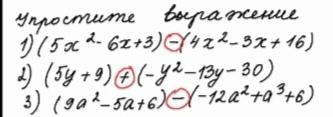 Упростите выражение
1) (5x² - 6x + 3) - (4x² - 3x + 16)
2) (5y + 9) + (-y² - 13y - 30)
3) (9a² - 5a + 6) - (-12a² + a³ + 6)